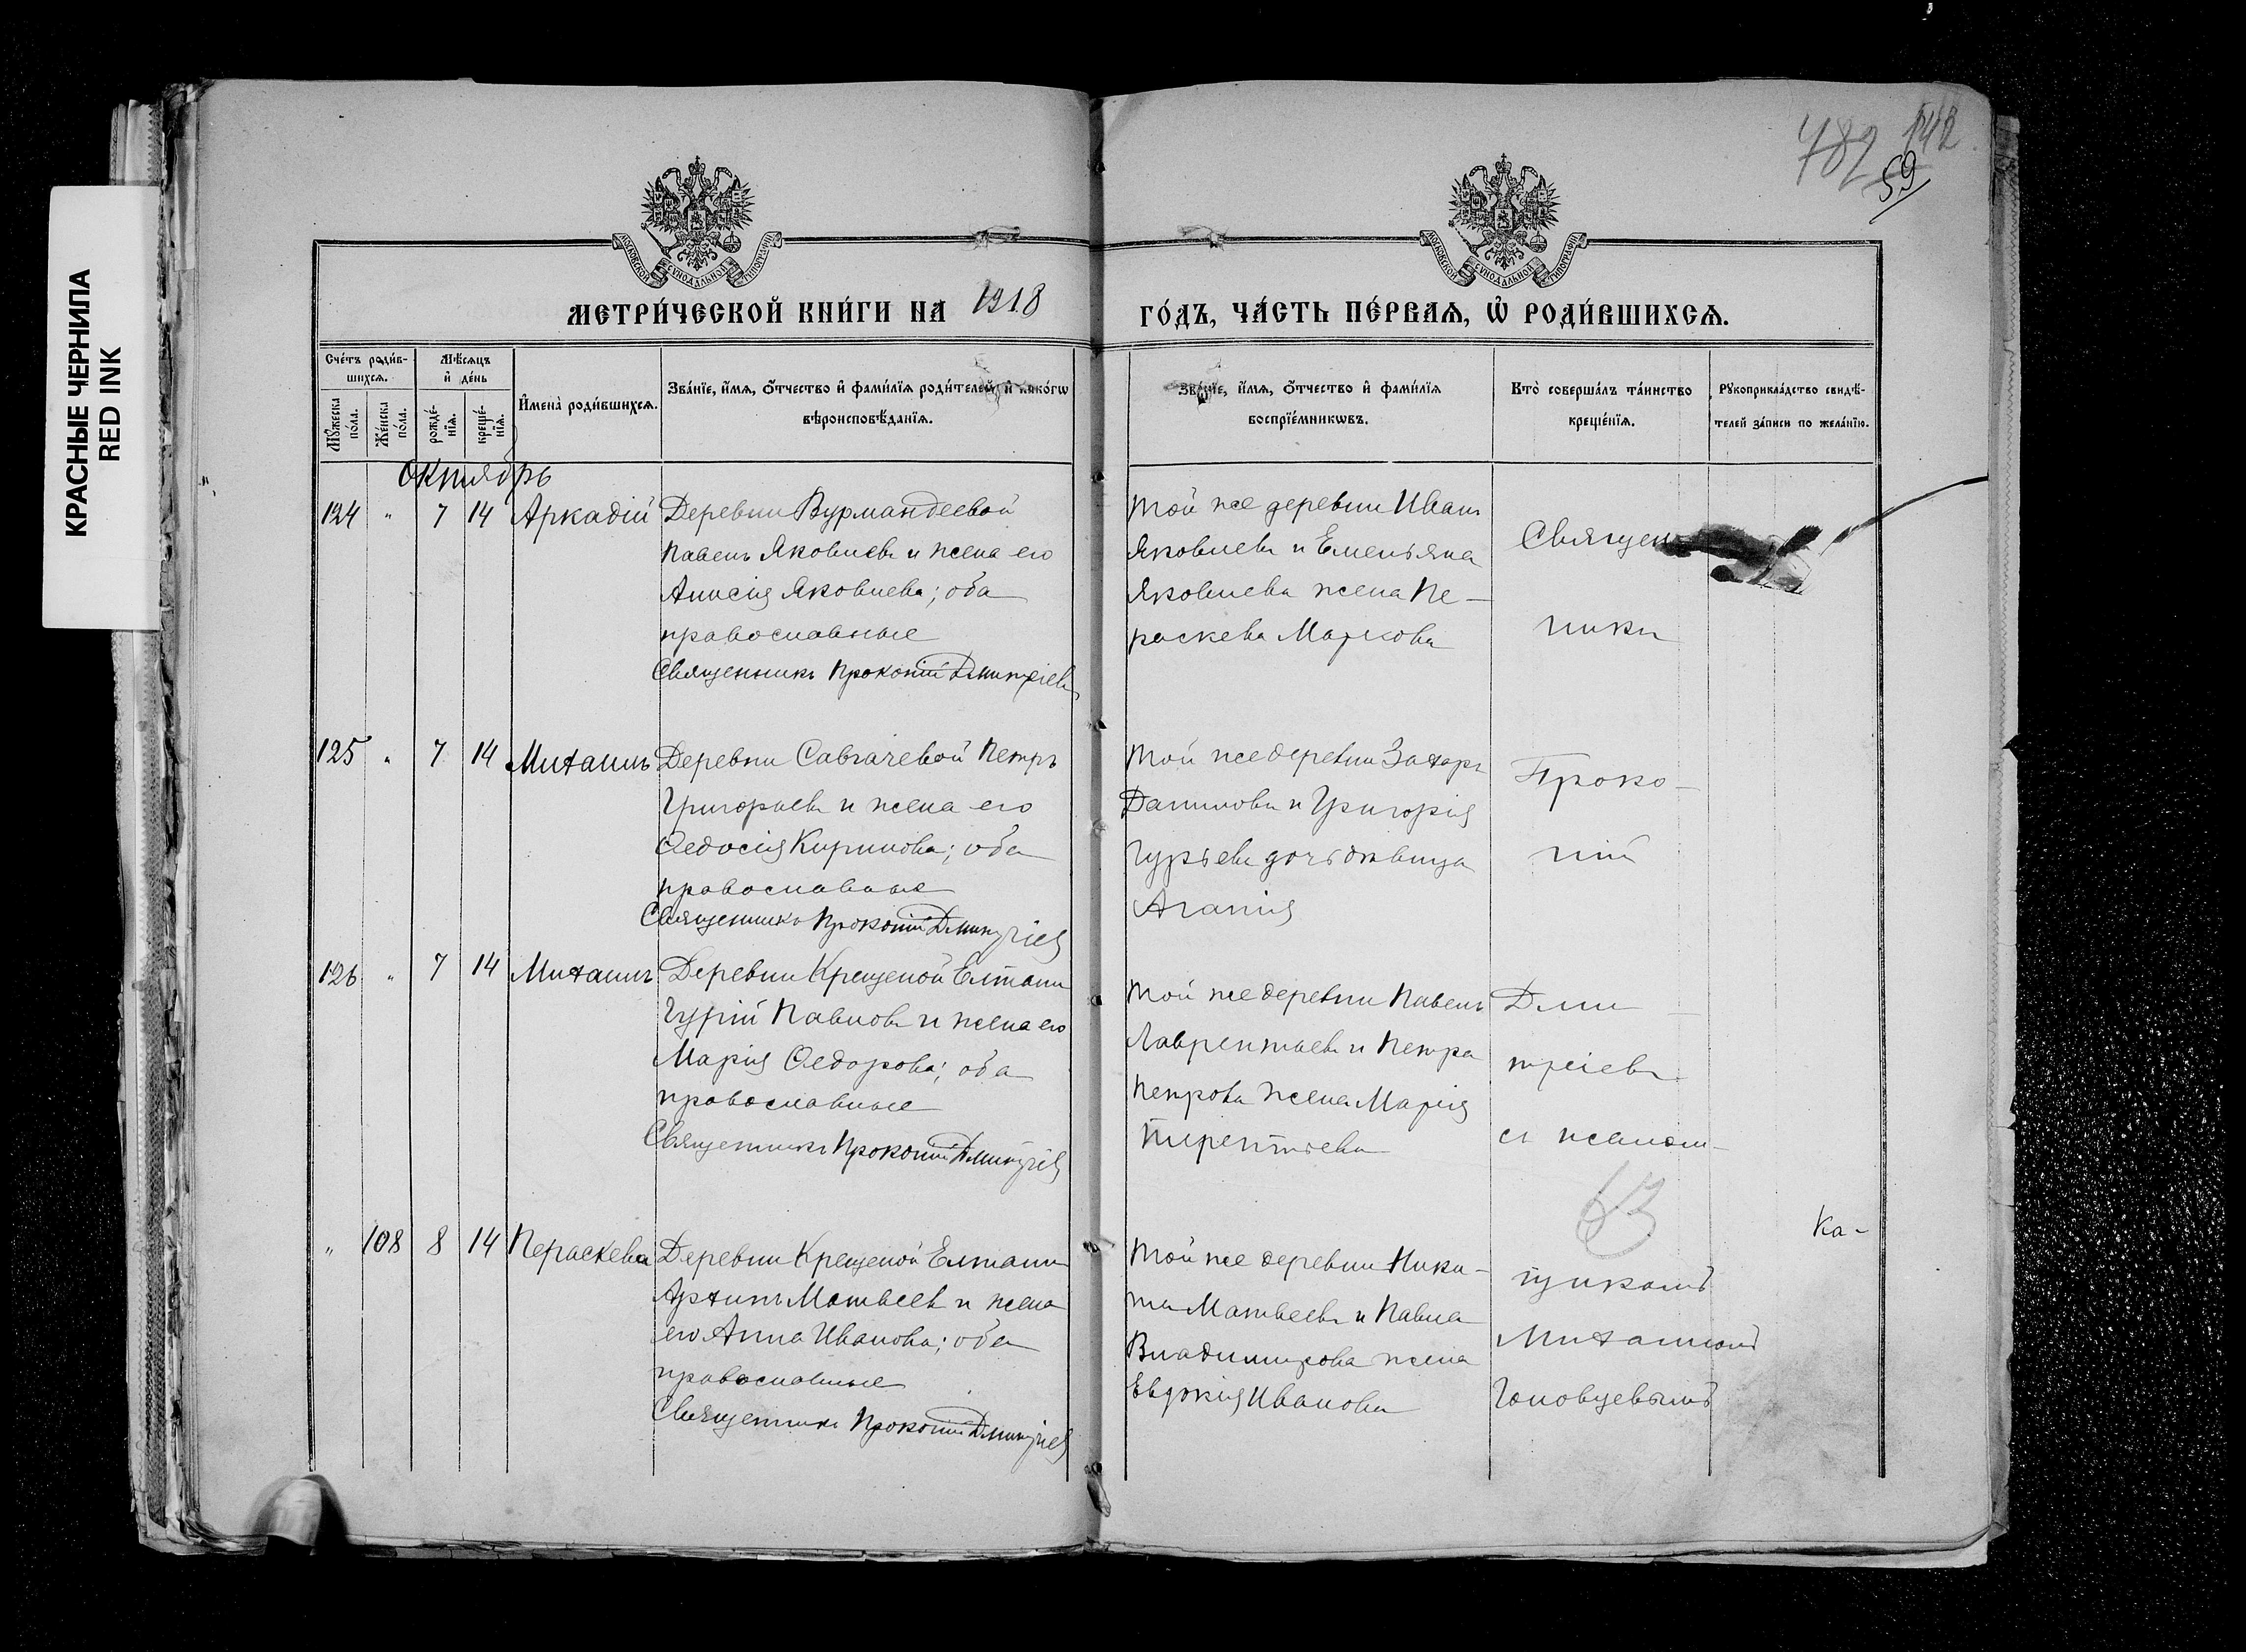 КРАСНЫЕ ЧЕРНИЛА
RED INK
482 142
59
МОСКОВСКОЙ СѴНОДАЛЬНОЙ ТИПОГРАФІИ
МОСКОВСКОЙ СѴНОДАЛЬНОЙ ТИПОГРАФІИ
МЕТРИ́ЧЕСКОЙ КНИ́ГИ НА 1918 ГО́ДЪ, ЧА́СТЬ ПЕ́РВАЯ, Ѡ҆ РОДИ́ВШИХСЯ.
Сче́тъ роди́в-
шихся.
Мꙋ́жеска
по́ла.
Же́нска
по́ла.
Мѣ́сяцъ
и҆ де́нь
рожде́-
нїя.
креще́-
нїя.
И҆мена̀ роди́вшихся.
Зва́нїе, и҆́мя, ѻ҆́тчество и҆ фами́лїя роди́телей, и҆ како́гѡ
вѣроисповѣ́данїя.
Зва́нїе, и҆́мя, ѻ҆́тчество и҆ фами́лїя
воспрїе́мникѡвъ.
Кто̀ соверша́лъ та́инство
креще́нїя.
Рꙋкоприкла́дство свидѣ́-
телей за́писи по жела́нїю.
Октябрь
124 " 7 14 Аркадій
Деревни Вурмандеевой
Павелъ Яковлевъ и жена его
Анисія Яковлева; оба
православные
Священникъ Прокопій Дмитріевъ
Той же деревни Иванъ
Яковлевъ и Емельяна
Яковлева жена Пе-
раскева Маркова
Священ
никъ
125 " 7 14 Михаилъ
Деревни Савгачевой Петръ
Григорьевъ и жена его
Ѳедосія Кирилова; оба
православные
Священникъ Прокопій Дмитріевъ
Той же деревни Захаръ
Даниловъ и Григорія
Гурьева дочь дѣвица
Агапія
Проко-
пій
126 " 7 14 Михаилъ
Деревни Крещеной Елтани
Гурій Павловъ и жена его
Марія Ѳедорова; оба
православные
Священникъ Прокопій Дмитріевъ
Той же деревни Павелъ
Лаврентьевъ и Петра
Петрова жена Марія
Терентьева
Дми
тріевъ
съ псалом-
63
Ка-
" 108 8 14 Пераскева
Деревни Крещеной Елтани
Архипъ Матвеевъ и жена
его Анна Иванова; оба
православные
Священникъ Прокопій Дмитріевъ
Той же деревни Ники-
та Матвеевъ и Павла
Владимирова жена
Евдокія Иванова
щикомъ
Михаиломъ
Головцевымъ